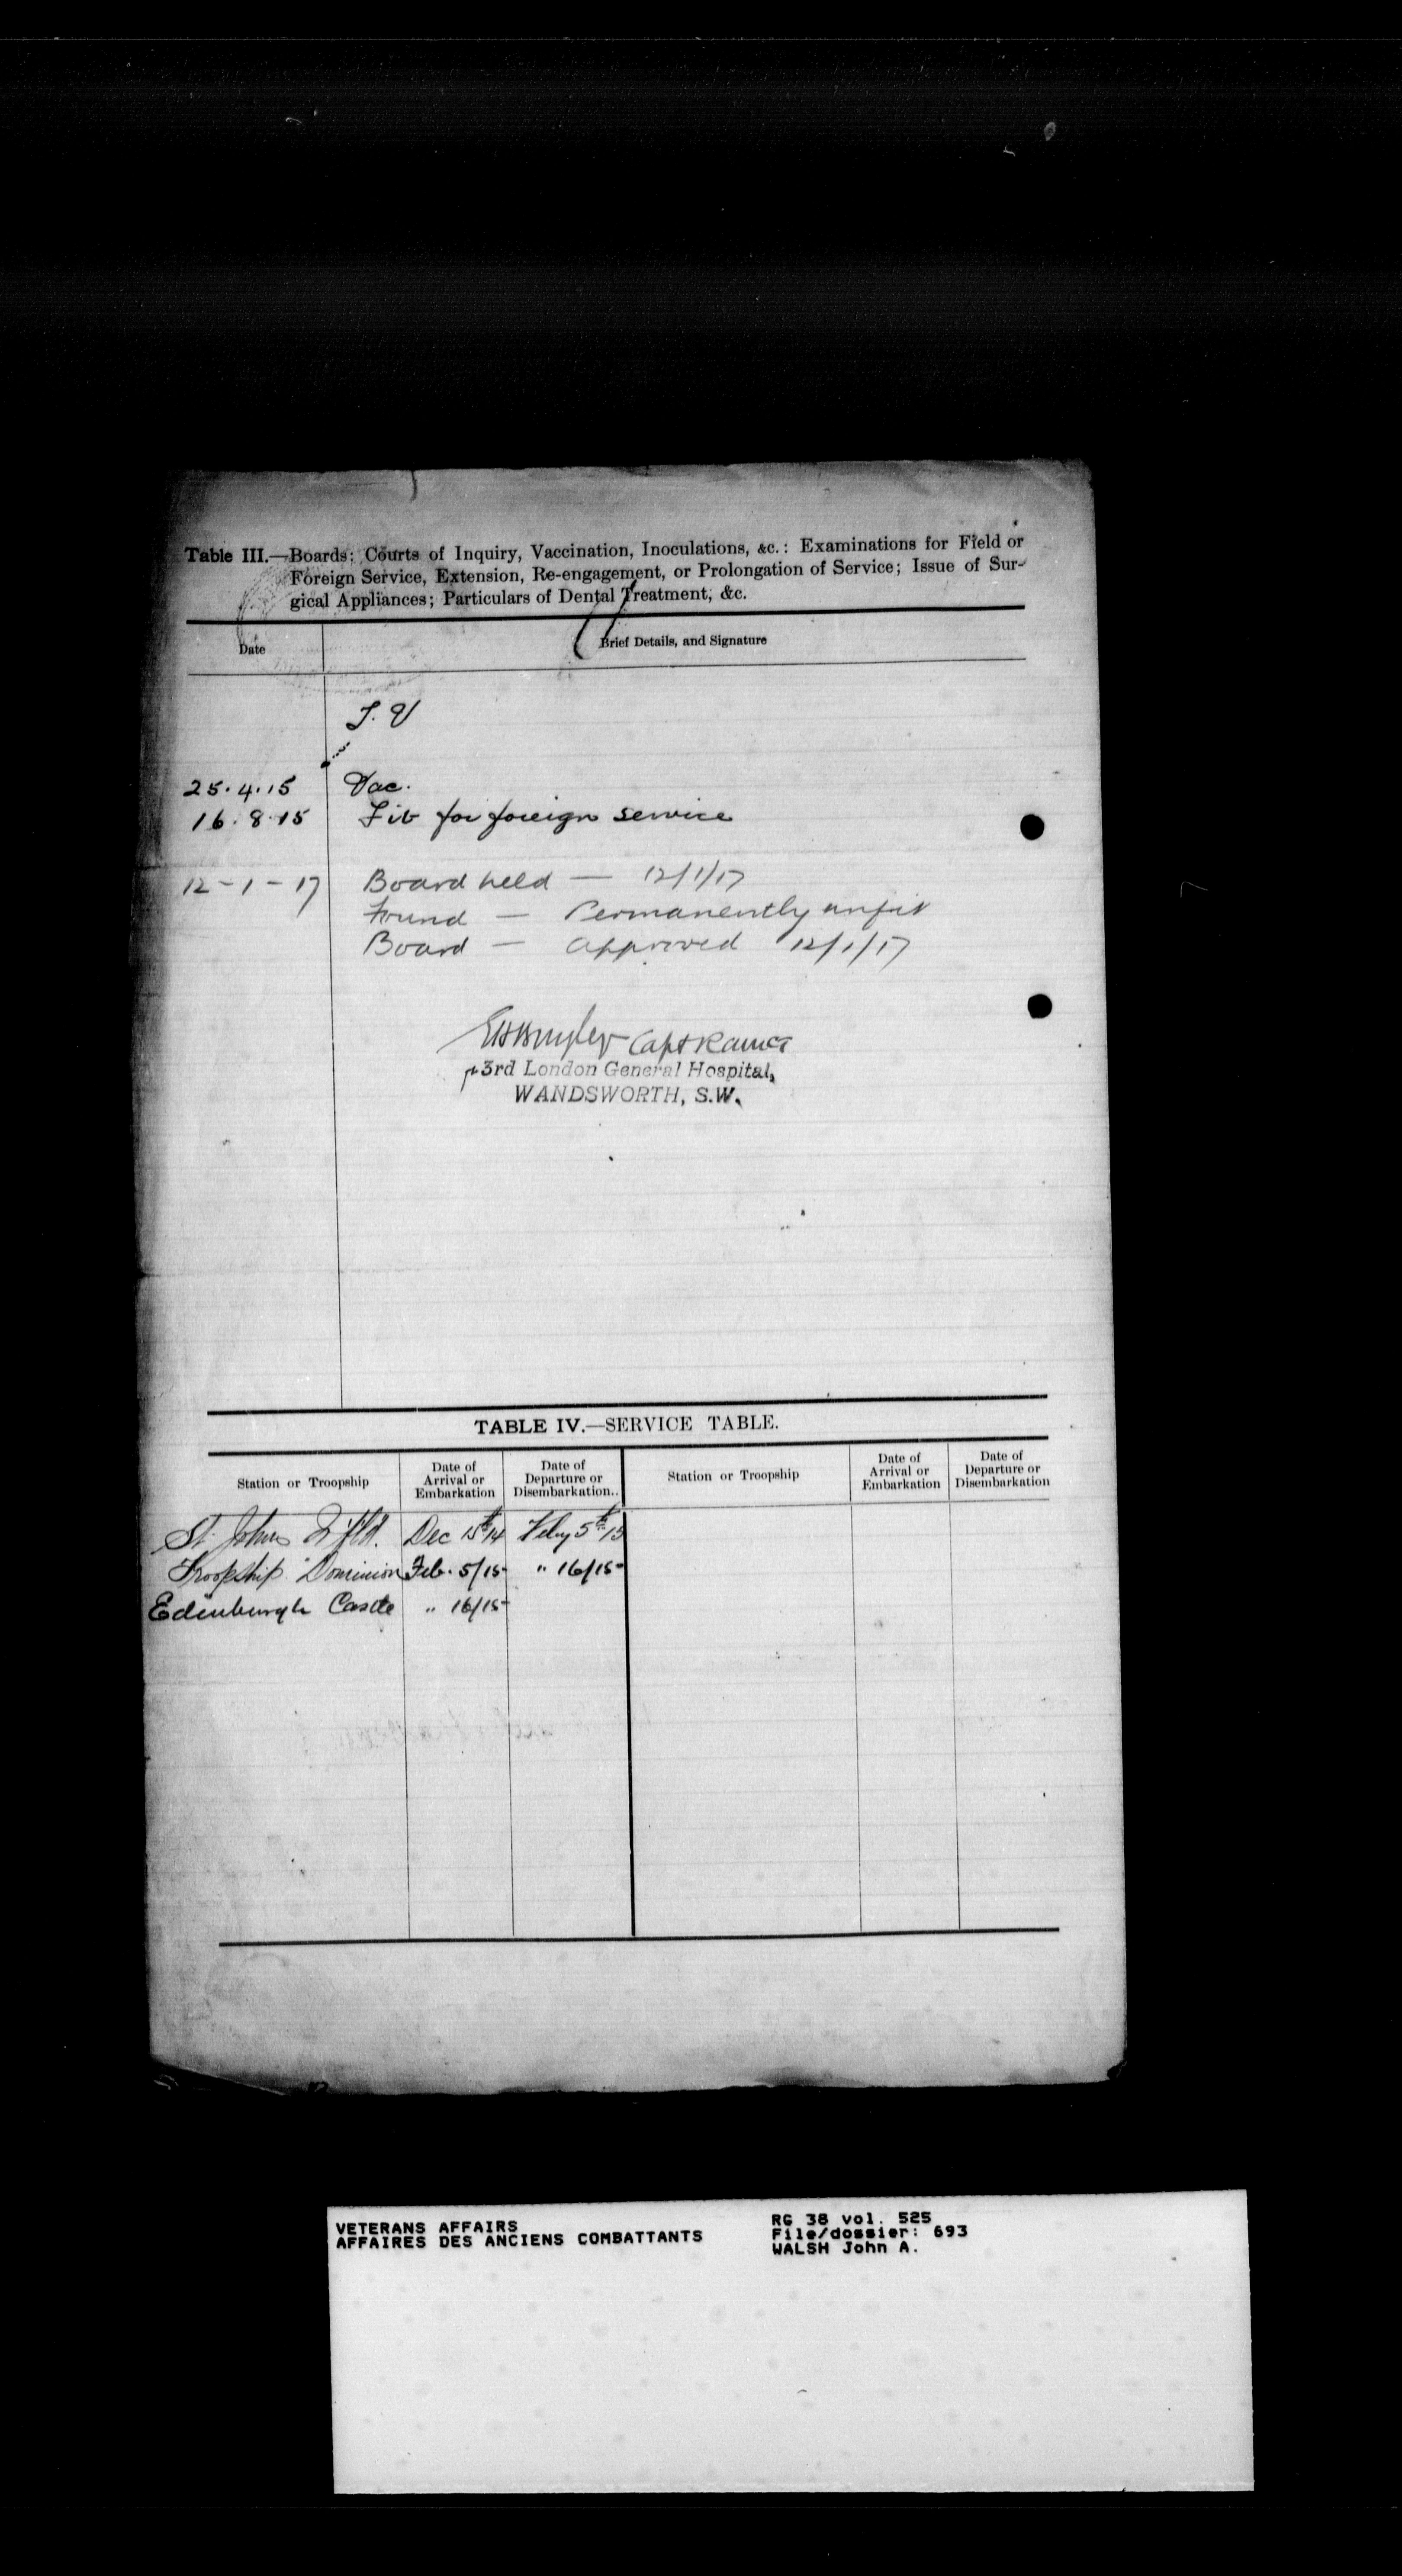 Table III.—Boards; Courts of Inquiry, Vaccination, Inoculations, &c.: Examinations for Field or
Foreign Service, Extension, Re-engagement, or Prolongation of Service; Issue of Sur-
gical Appliances; Particulars of Dental Treatment, &c.
Date Brief Details, and Signature
25.4.15 Vac.
16.8.15 Fit for foreign service
12-1-17 Board held — 12/1/17
Found — Permanently unfit
Board — approved 12/1/17
Capt RAMCT
3rd London General Hospital,
WANDSWORTH, S.W.
TABLE IV.—SERVICE TABLE.
Station or Troopship Date of Arrival or Embarkation Date of Departure or Disembarkation.. Station or Troopship Date of Arrival or Embarkation Date of Departure or Disembarkation
St. Johns Nfld. Dec 15th 14 Feby 5th 15
Troopship Dominion Feb. 5/15 " 16/15
Edinburgh Castle " 16/15
VETERANS AFFAIRS
AFFAIRES DES ANCIENS COMBATTANTS
RG 38 vol. 525
File/dossier: 693
WALSH John A.